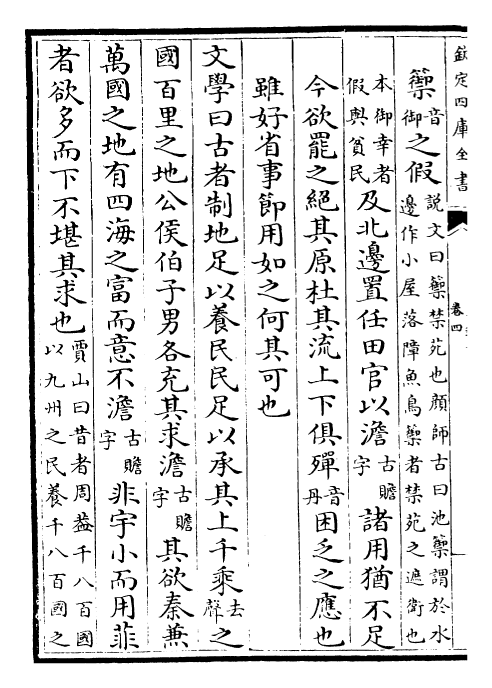 欽定四庫全書 卷四
籞音御之假說文曰籞禁苑也顔師古曰池籞謂於水邊作小屋落障魚鳥籞者禁苑之遮衛也
本御幸者假與貧民及北邊置任田官以澹古贍字諸用猶不足
今欲罷之絕其原杜其流上下俱殫音丹困乏之應也
雖好省事節用如之何其可也
文學曰古者制地足以養民民足以承其上千乘去聲之
國百里之地公侯伯子男各充其求澹古贍字其欲秦兼
萬國之地有四海之富而意不澹古贍字非宇小而用菲
者欲多而下不堪其求也賈山曰昔者周葢千八百國以九州之民養千八百國之